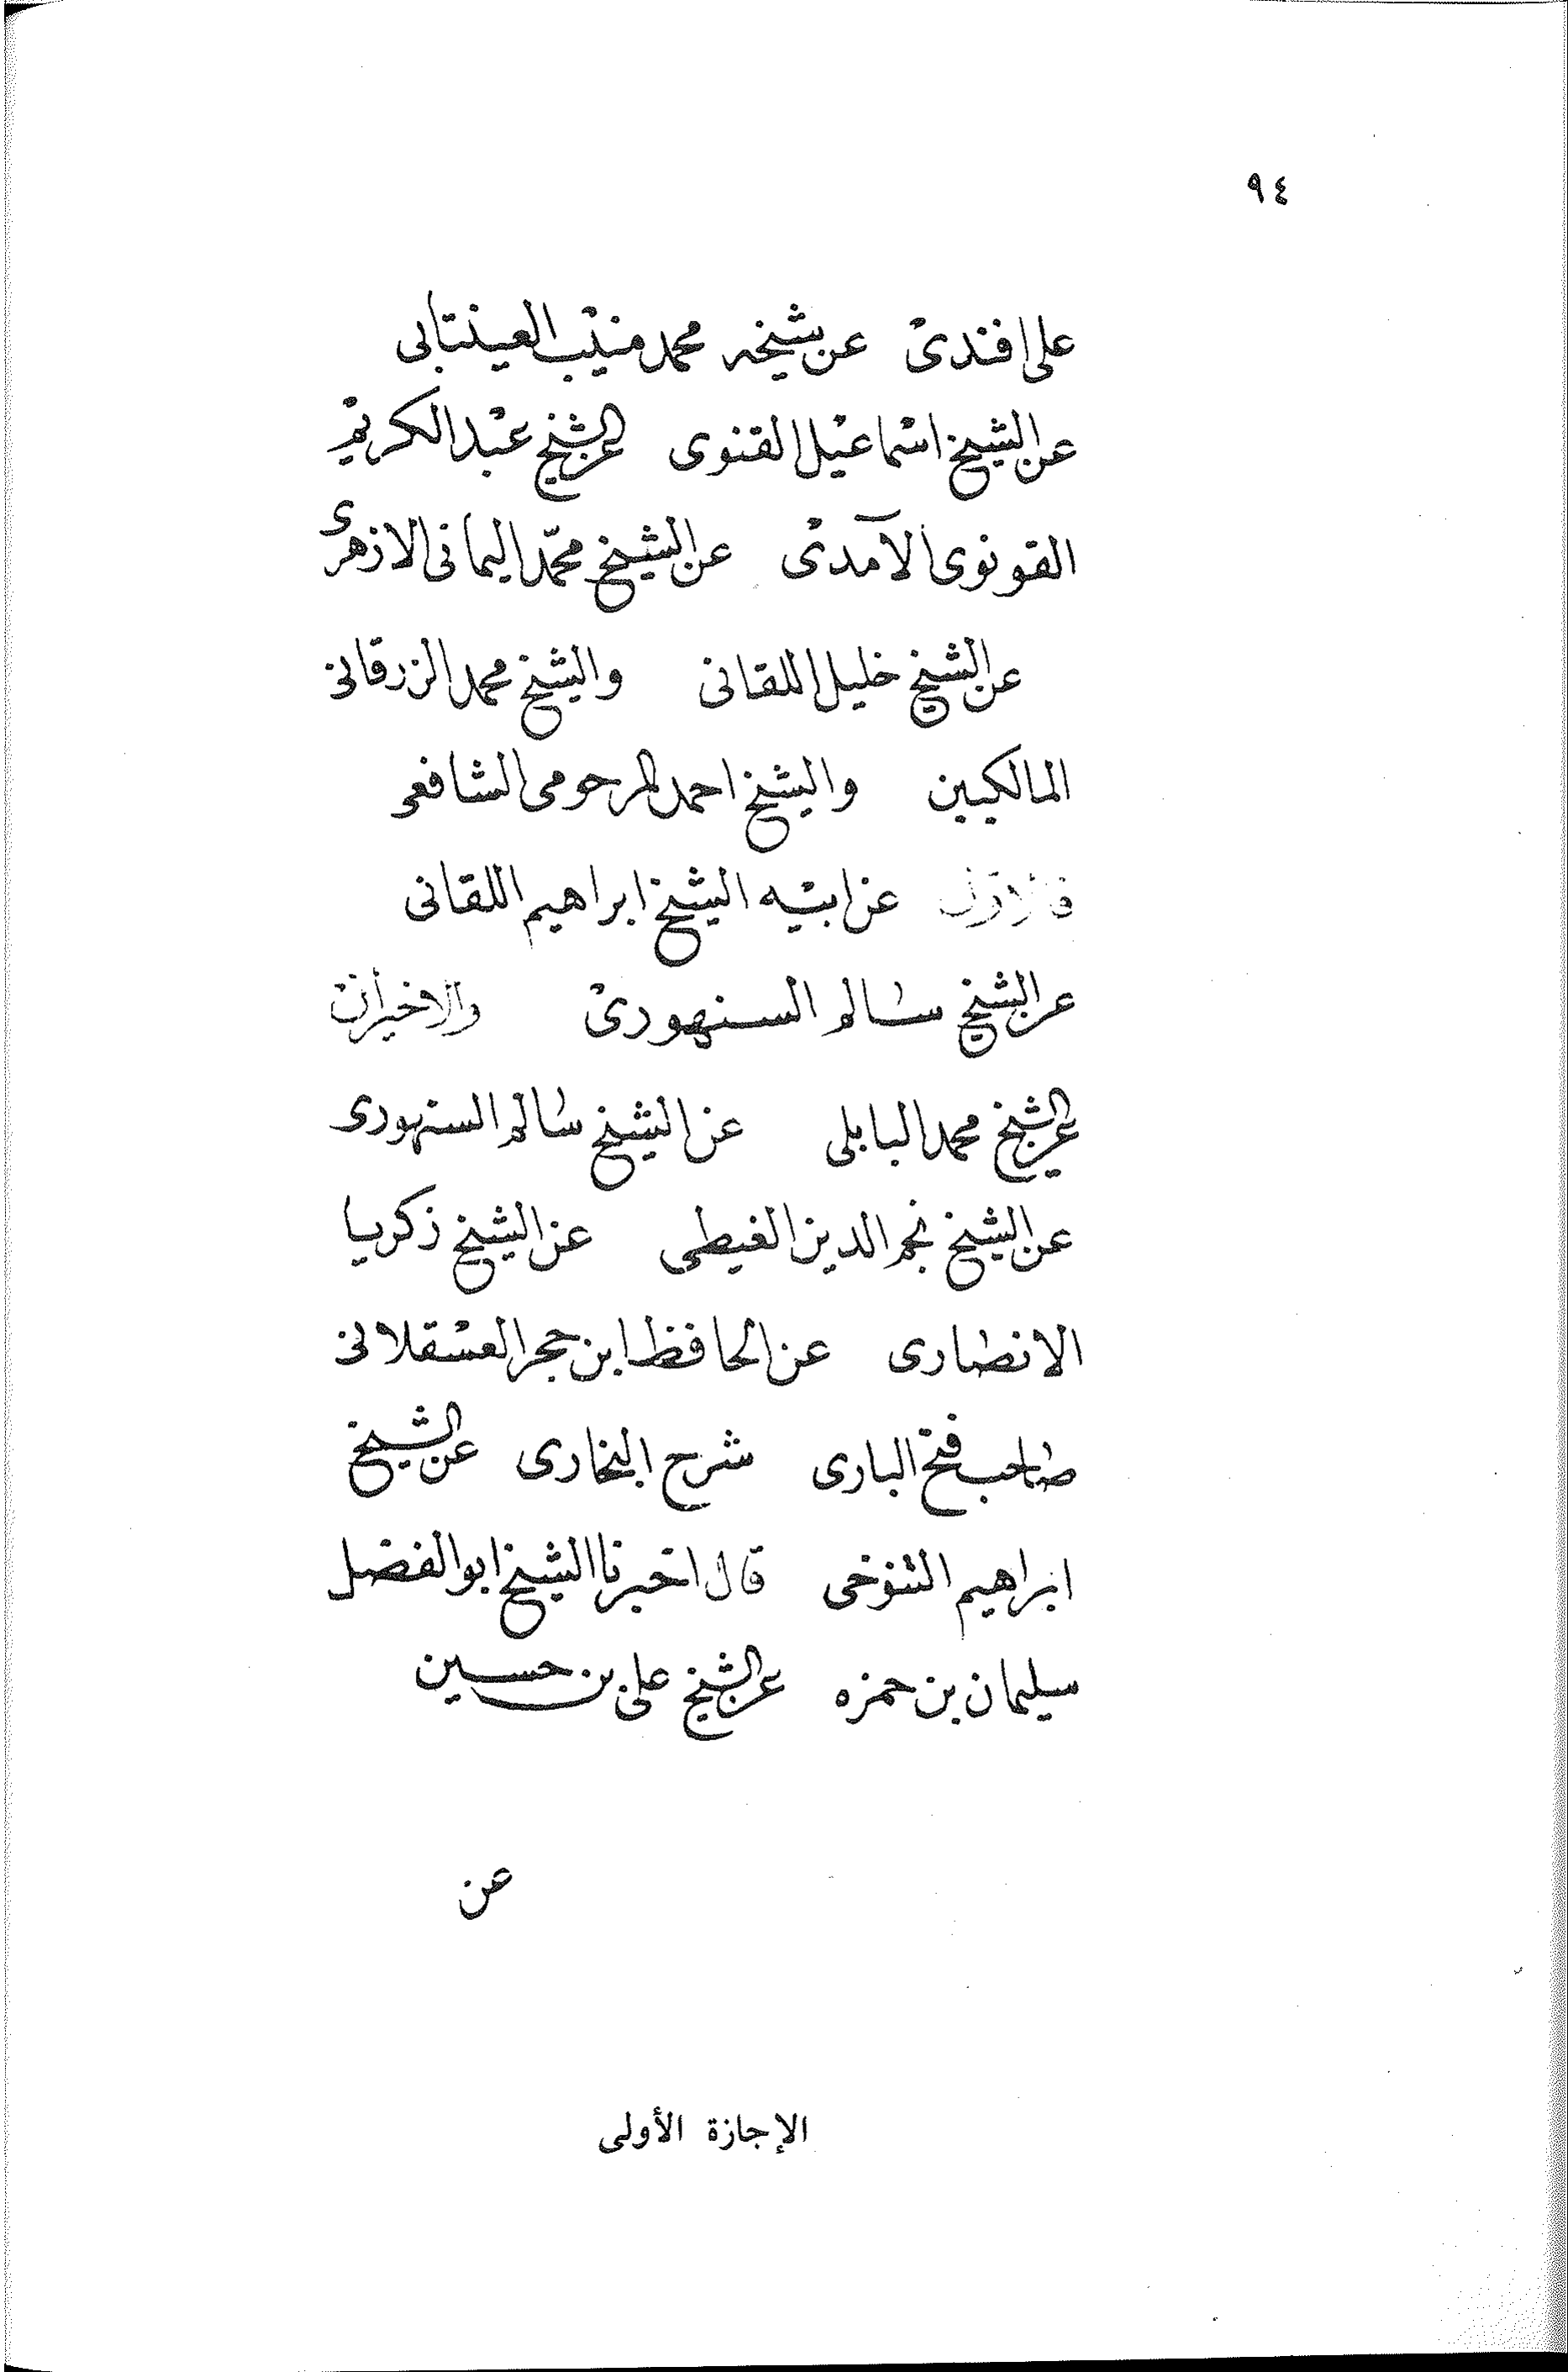 ٩٤
على افندى عن شيخه محمد منيب العينتابى
عن الشيخ اسماعيل القنوى عن الشيخ عبد الكريم
القونوى الآمدى عن الشيخ محمّد اليمانى الازهرى
عن الشيخ خليل اللقانى والشيخ محمد الزرقانى
المالكيين والشيخ احمد المرحومى الشافعى
فالاول عن ابيه الشيخ ابراهيم اللقانى
عن الشيخ سالم السنهورى والاخيران
عن الشيخ محمد البابلى عن الشيخ سالم السنهورى
عن الشيخ نجم الدين الغيطى عن الشيخ زكريا
الانصارى عن الحافظ ابن حجر العسقلانى
صاحب فتح البارى شرح البخارى عن الشيخ
ابراهيم التنوخى قال اخبرنا الشيخ ابو الفضل
سليمان بن حمزه عن الشيخ على بن حسين
عن
الإجازة الأولى